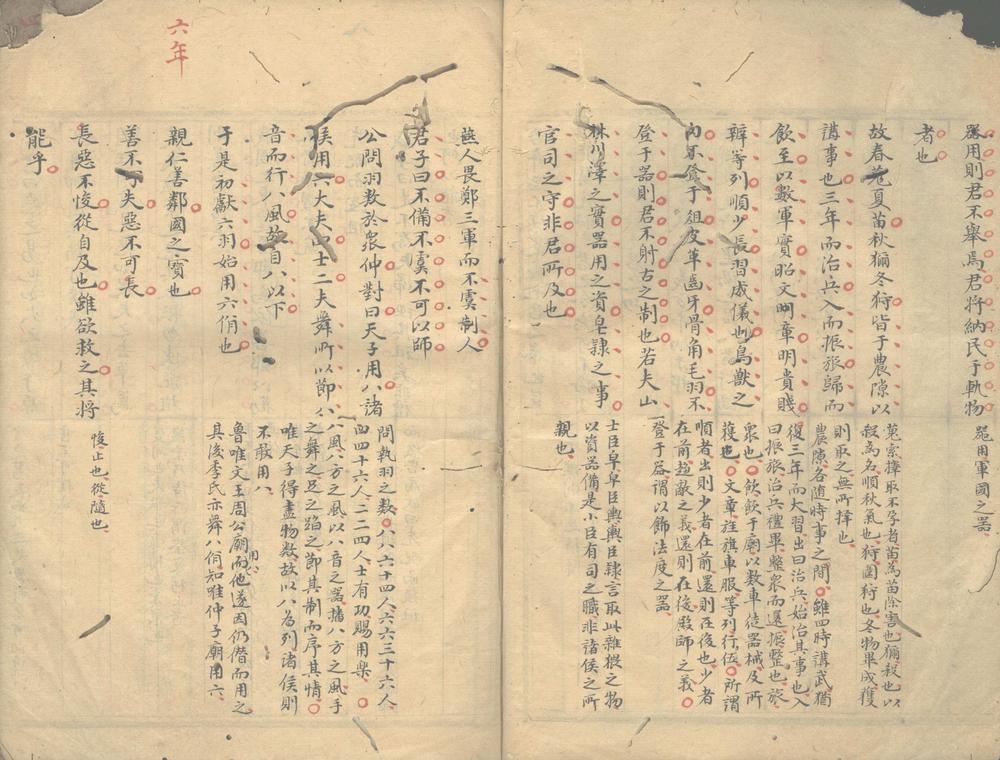 器用則君不舉焉君將納民于軌物
者也
故春蒐夏苗秋獮冬狩皆于農隙以
講事也三年而治兵入而振旅歸而
飲至以數軍實昭文明章明貴賤
辨等列順少長習威儀也鳥獸之
肉不登于俎皮革齒牙骨角毛羽不
登于器則君不射古之制也若夫山
林川澤之實器用之資皂隸之事
官司之守非君所及也
噐用軍國之器
蒐索擇取不孕者苗為苗除害也獮殺也以
殺為名順秋氣也狩圍狩也冬物畢成獲
則取之無所擇也
農隙各随時事之間雖四時講武猶
復三年而大習出曰治兵始治其事也入
曰振旅治兵禮畢整衆而還振整也旅
衆也飲飲于廟以數車徒器械及所
獲也文章旌旗車服等列行伍所謂
順者出則少者在前還則在後也少者
在前趨敵之義還則在後殿師之義
登于器謂以飾法度之器
士臣皁皁臣輿輿臣隸言取此雜猥之物
以資器備是小臣有司之職非諸侯之所
親也
燕人畏鄭三軍而不虞制人
君子曰不備不虞不可以師
公問羽数於衆仲對曰天子用八諸
侯用六大夫四士二夫舞所以節八
音而行八風故自八以下
于是初獻六羽始用六佾也
問執羽之数八八六十四人六六三十六人
四四十六人二二四人士有功賜用樂
八風八方之風以八音之器播八方之風手
之舞之足之蹈之節其制而序其情
唯天子得盡物数故以八為列諸侯則
不敢用八
魯唯文王周公廟用八而他遂因仍僭而用之
其後季氏亦舞八佾知唯仲子廟用六
六年
親仁善鄰國之寶也
善不可失惡不可長
長惡不悛從自及也雖欲救之其將
能乎
悛止也從隨也